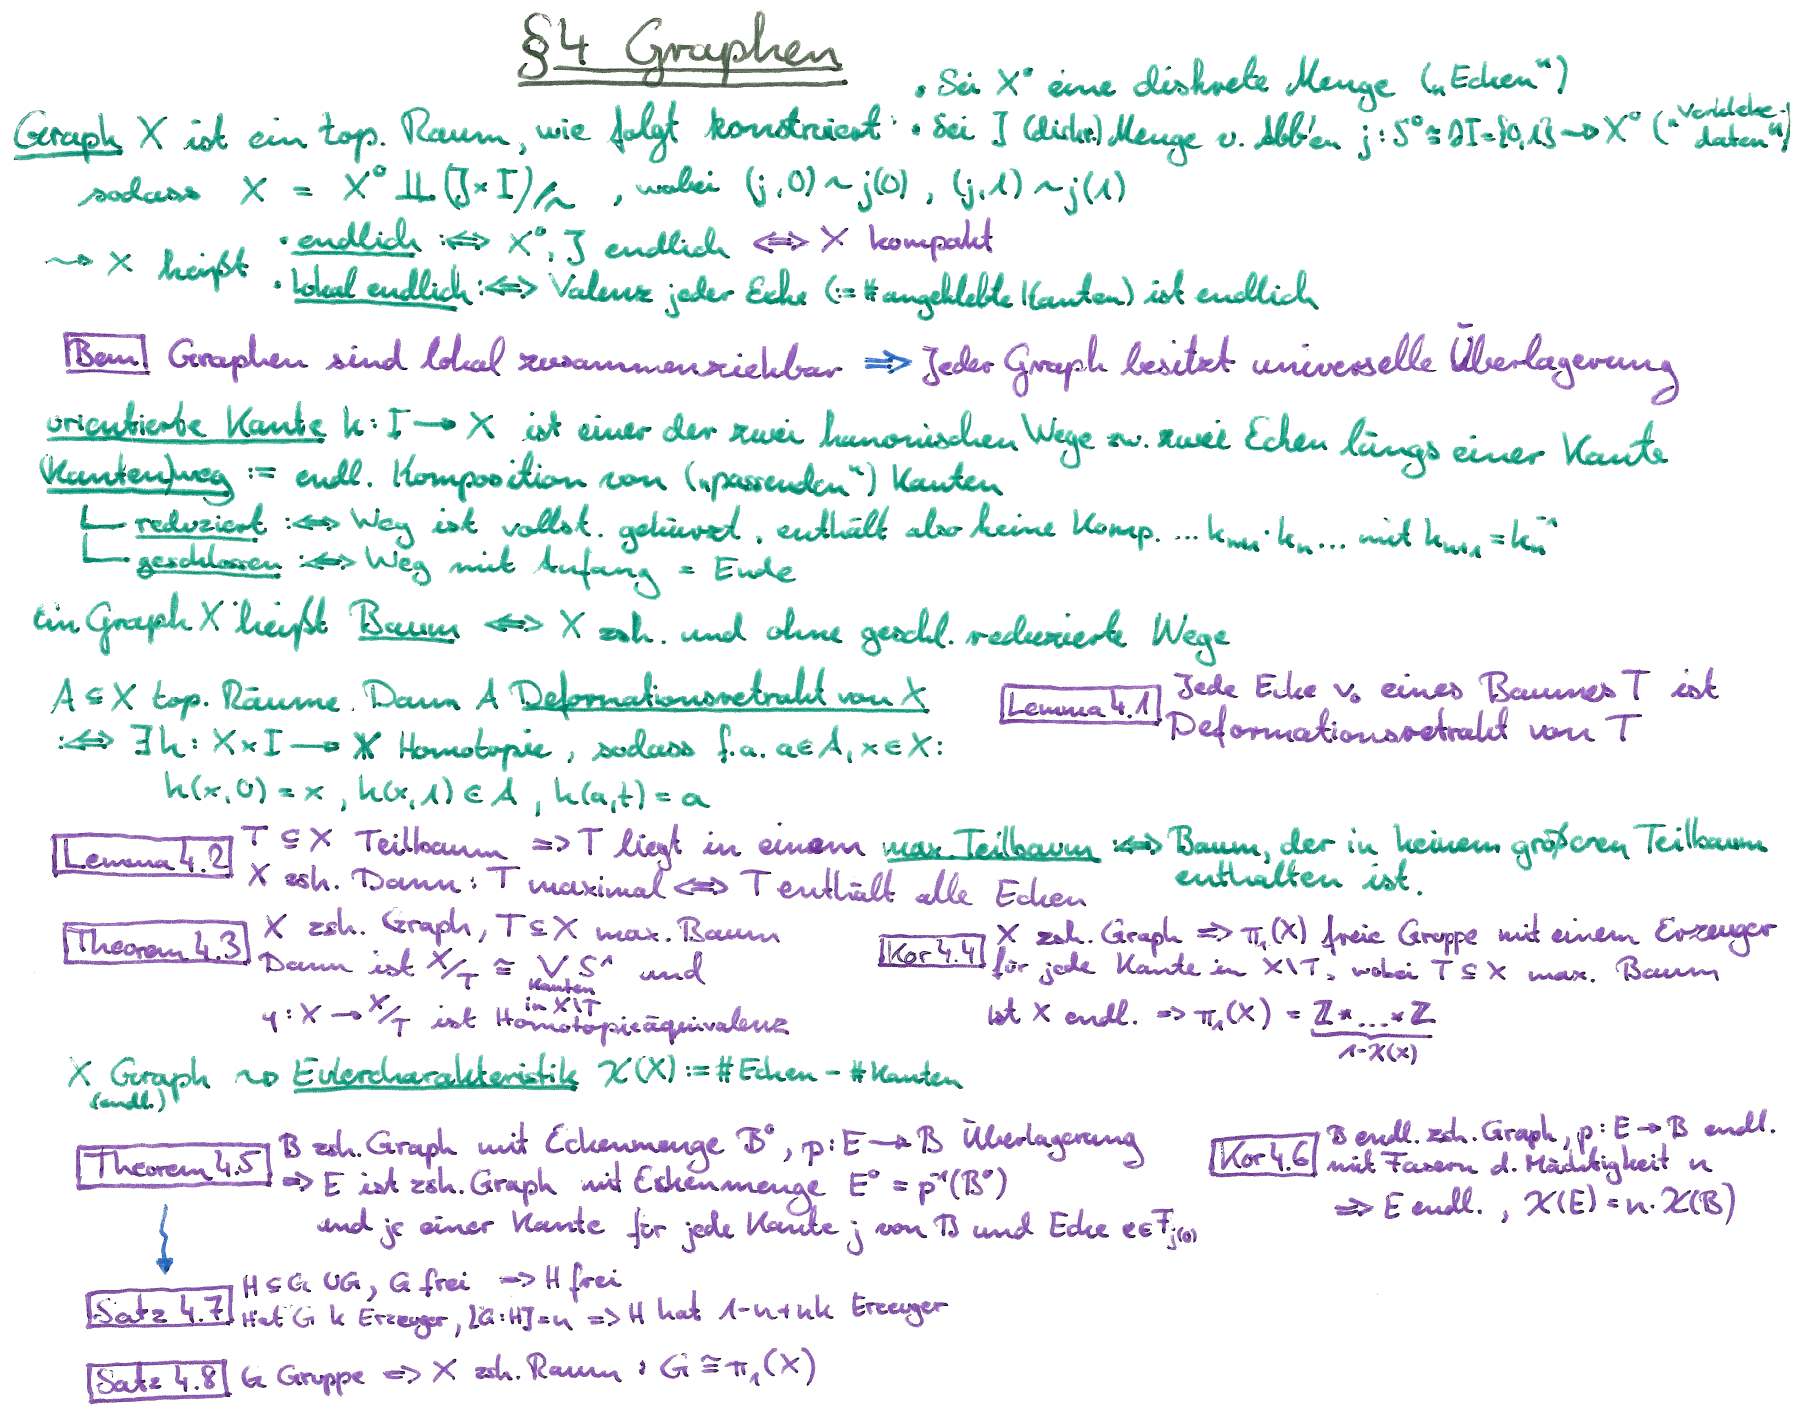 §4 Graphen
Graph X ist ein top. Raum, wie folgt konstruiert: • Sei X⁰ eine diskrete Menge („Ecken“)
• Sei J (diskr.) Menge v. Abb'en j: S⁰ ≅ ∂I = {0,1} → X⁰ („Verklebedaten“)
sodass X = X⁰ ⨿ (J × I)/~ , wobei (j,0) ~ j(0), (j,1) ~ j(1)
⇝ X heißt • endlich :⇔ X⁰, J endlich ⇔ X kompakt
• lokal endlich :⇔ Valenz jeder Ecke (:= # angeklebte Kanten) ist endlich
Bem. Graphen sind lokal zusammenziehbar ⇒ Jeder Graph besitzt universelle Überlagerung
orientierte Kante k: I → X ist einer der zwei kanonischen Wege zw. zwei Ecken längs einer Kante
(Kanten)weg := endl. Komposition von („passenden“) Kanten
reduziert :⇔ Weg ist vollst. gekürzt, enthält also keine Komp. ... kₙ₊₁ · kₙ ... mit kₙ₊₁ = kₙ⁻¹
geschlossen :⇔ Weg mit Anfang = Ende
Ein Graph X heißt Baum ⇔ X zsh. und ohne geschl. reduzierte Wege
A ⊆ X top. Räume. Dann A Deformationsretrakt von X
:⇔ ∃ h: X × I → X Homotopie, sodass f.a. a ∈ A, x ∈ X:
h(x,0) = x, h(x,1) ∈ A, h(a,t) = a
Lemma 4.1 Jede Ecke v₀ eines Baumes T ist
Deformationsretrakt von T
Lemma 4.2 T ⊆ X Teilbaum ⇒ T liegt in einem max. Teilbaum :⇔ Baum, der in keinem größeren Teilbaum
enthalten ist.
X zsh. Dann: T maximal ⇔ T enthält alle Ecken
Theorem 4.3 X zsh. Graph, T ⊆ X max. Baum
Dann ist X/T ≅ ⋁ S¹ und
Kanten
in X\T
q: X → X/T ist Homotopieäquivalenz
Kor 4.4 X zsh. Graph ⇒ π₁(X) freie Gruppe mit einem Erzeuger
für jede Kante in X\T, wobei T ⊆ X max. Baum
Ist X endl. ⇒ π₁(X) = ℤ * ... * ℤ
1-χ(X)
X Graph ⇝ Eulercharakteristik χ(X) := # Ecken - # Kanten
(endl.)
Theorem 4.5 B zsh. Graph mit Eckenmenge B⁰, p: E → B Überlagerung
⇒ E ist zsh. Graph mit Eckenmenge E⁰ = p⁻¹(B⁰)
und je einer Kante für jede Kante j von B und Ecke e ∈ F_j(0)
Kor 4.6 B endl. zsh. Graph, p: E → B endl.
mit Fasern d. Mächtigkeit n
⇒ E endl., χ(E) = n · χ(B)
Satz 4.7 H ⊆ G UG, G frei ⇒ H frei
Hat G k Erzeuger, [G:H] = n ⇒ H hat 1-n+nk Erzeuger
Satz 4.8 G Gruppe ⇒ X zsh. Raum : G ≅ π₁(X)